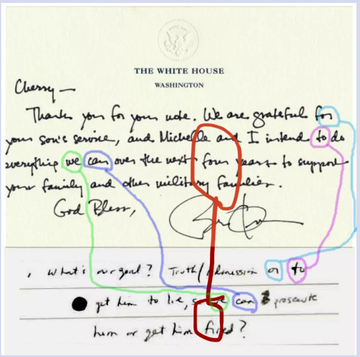 THE WHITE HOUSE
WASHINGTON
Cherry—
Thank you for your note. We are grateful for
your son's service, and Michelle and I intend to do
everything we can over the next four years to support
your family and other military families.
God Bless,
, What's our goal? Truth/Admission or to
get him to lie, so we can prosecute
him or get him fired?